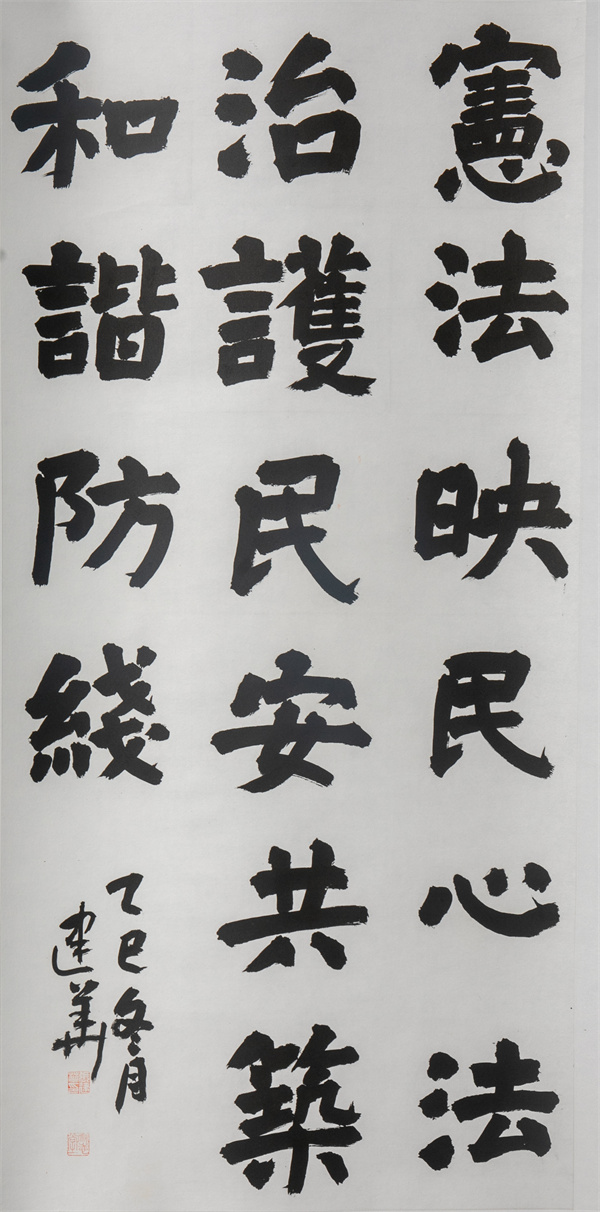 憲法映民心法
治護民安共築
和諧防綫
乙巳冬月
建華